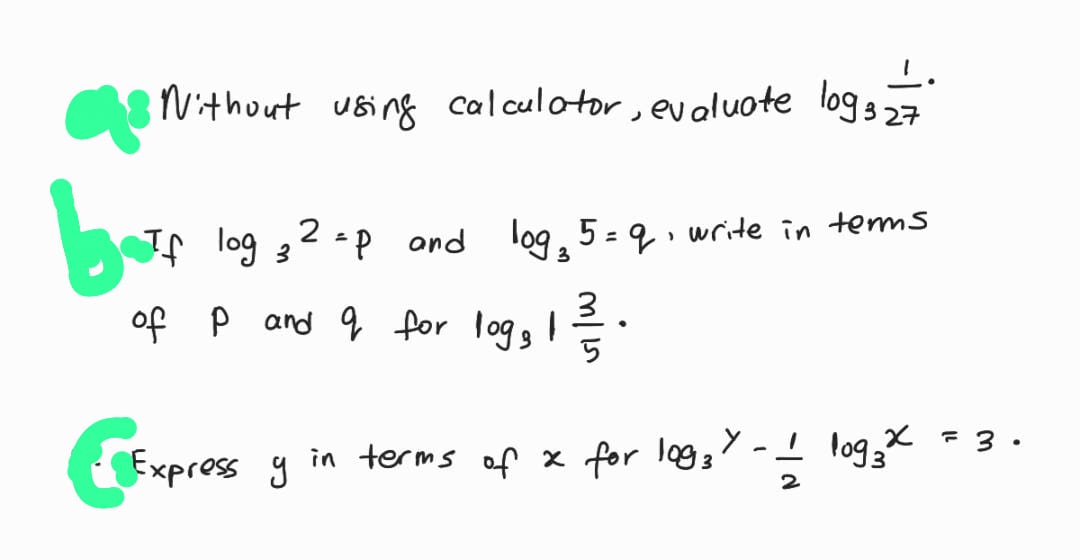 a: Without using calculator, evaluate log₃ 1/27.
b. If log₃ 2 = p and log₃ 5 = q, write in terms
of p and q for log₃ 1 3/5.
C. Express y in terms of x for log₃ y - 1/2 log₃ x = 3.